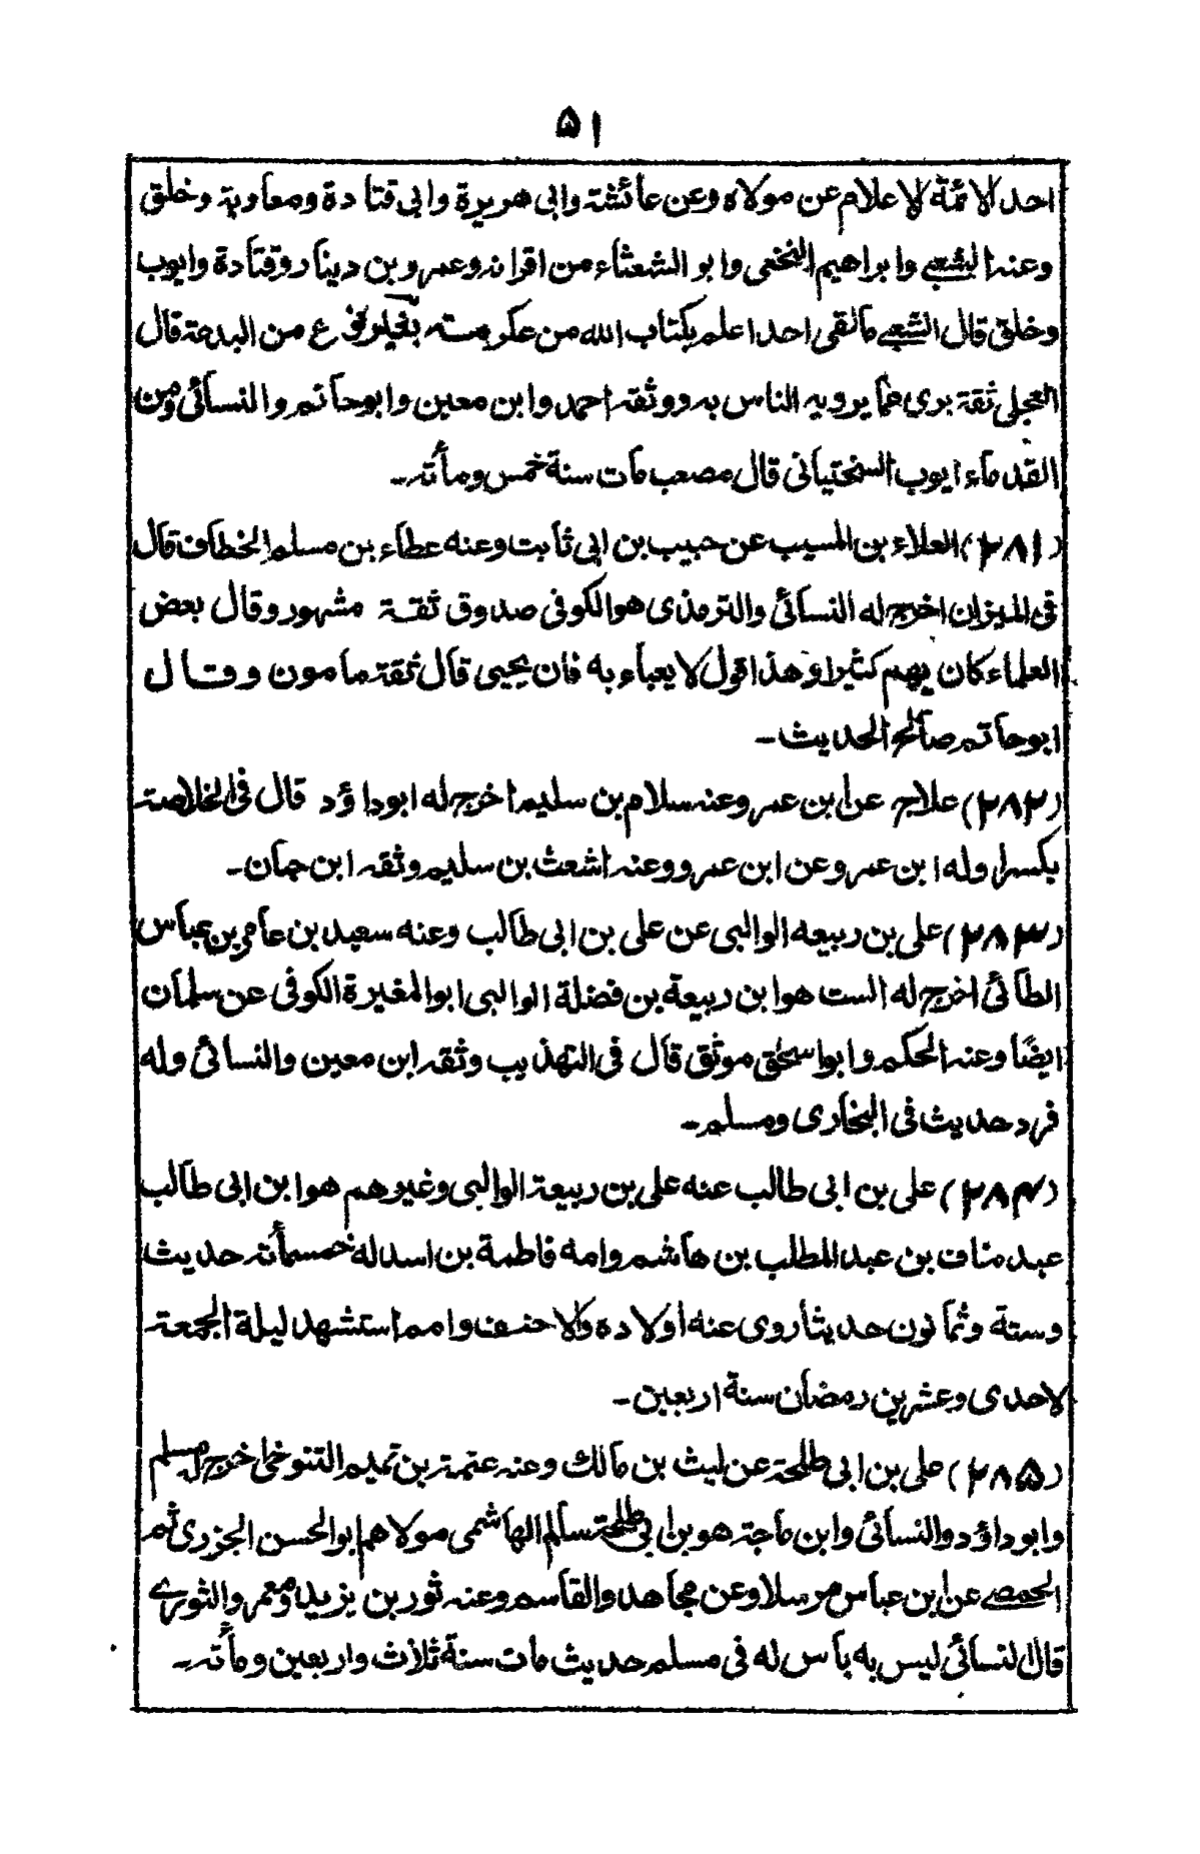 ۵۱
احد الائمة الاعلام عن مولاه وعن عائشة وابی هريرة وابی قتادة ومعاوية وخلق
وعنه الشعبے وابراهيم النخعی وابو الشعثاء من اقرانه وعمرو بن دينار وقتادة وايوب
وخلق قال الشعبے مالقی احدا اعلم بكتاب الله من عكرمته من البدعة قال
العجلی ثقة بری مما يرويه الناس به ووثقه احمد وابن معين وابوحاتم والنسائی ومن
القدماء ايوب السختيانی قال مصعب مات سنة خمس ومأته۔
(۲۸۱) العلاء بن المسيب عن حبيب بن ابی ثابت وعنه عطاء بن مسلم الخطاف قال
فی الميزان اخرج له النسائی والترمذی هو الكوفی صدوق ثقة مشهور وقال بعض
العلماء كان يهم كثيرا وهذا قول لا يعباء به فان يحيی قال ثقة مامون وقال
ابوحاتم صالح الحديث۔
(۲۸۲) علاج عن ابن عمر وعنه سلام بن سليم اخرج له ابوداؤد قال فی الخلاصة
بكسر اوله ابن عمرو عن ابن عمرو وعنه اشعث بن سليم وثقه ابن حبان۔
(۲۸۳) علی بن ربيعه الوالبی عن علی بن ابی طالب وعنه سعيد بن عامر بن عباس
الطائی اخرج له الست هو ابن ربيعة بن فضلة الوالبی ابو المغيرة الكوفی عن سلمان
ايضًا وعنه الحكم وابو اسحٰق موثق قال فی التهذيب وثقه ابن معين والنسائی وله
فرد حديث فی البخاری ومسلم۔
(۲۸۴) علی بن ابی طالب عنه علی بن ربيعة الوالبی وغيرهم هو ابن ابی طالب
عبد مناف بن عبد المطلب بن هاشم وامه فاطمة بن اسد له خمسمأته حديث
وستة وثمانون حديثا روی عنه اولاده والاحنف وامم استشهد ليلة الجمعة
لاحدی وعشرين رمضان سنة اربعين۔
(۲۸۵) علی بن ابی طلحة عن ليث بن مالك وعنه عتمة بن تميم التنوخی اخرج له مسلم
وابوداؤد والنسائی وابن ماجة هو بن ابی طلحة سالم الهاشمی مولاهم ابو الحسن الجزری ثم
الحمصے عن ابن عباس مرسلا وعن مجاهد والقاسم وعنه ثور بن يزيد ومعمر والثورے
قال لنسائی ليس به بأس له فی مسلم حديث مات سنة ثلاث واربعين ومأته۔